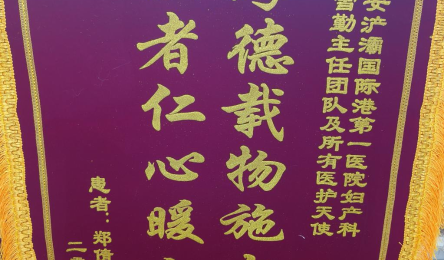 安浐灞国际港第一医院妇产科
勤主任团队及所有医护天使
德载物施
者仁心暖
患者：郑
二